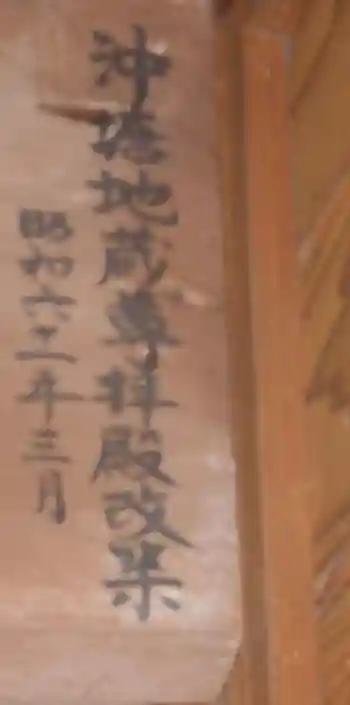 沖塔地蔵尊拝殿改築
昭和六二年三月